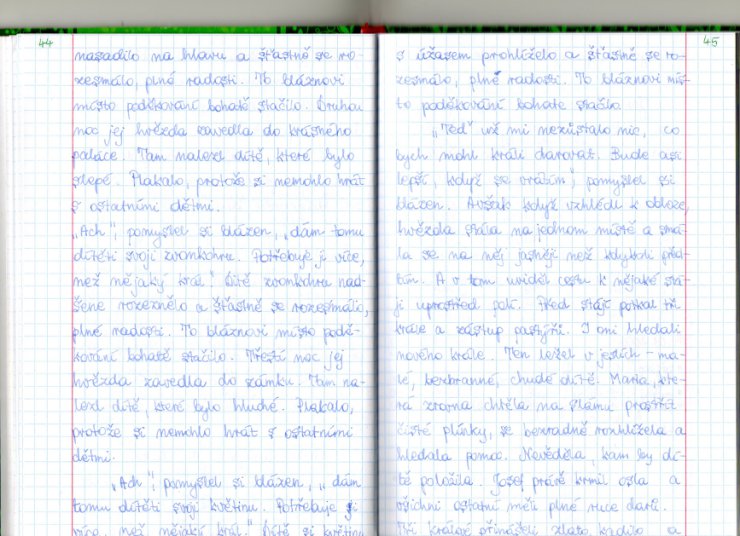 44
nasadilo na hlavu a šťastně se ro-
zesmálo, plné radosti. To bláznovi
místo poděkování bohatě stačilo. Druhou
noc jej hvězda zavedla do krásného
paláce. Tam nalezl dítě, které bylo
slepé. Plakalo, protože si nemohlo hrát
s ostatními dětmi.
„Ach", pomyslel si blázen, „dám tomu
dítěti svoji zvonkohru. Potřebuje ji více,
než nějaký král." Dítě zvonkohru nad-
šeně rozeznělo a šťastně se rozesmálo,
plné radosti. To bláznovi místo podě-
kování bohatě stačilo. Třetí noc jej
hvězda zavedla do zámku. Tam na-
lezl dítě, které bylo hluché. Plakalo,
protože si nemohlo hrát s ostatními
dětmi.
„Ach", pomyslel si blázen, „dám
tomu dítěti svoji květinu. Potřebuje ji
více, než nějaký král." Dítě si květinu
45
s úžasem prohlíželo a šťastně se ro-
zesmálo, plné radosti. To bláznovi mís-
to poděkování bohatě stačilo.
„Teď už mi nezůstalo nic, co
bych mohl králi darovat. Bude asi
lepší, když se vrátím", pomyslel si
blázen. Avšak když vzhlédl k obloze,
hvězda stála na jednom místě a smá-
la se na něj jasněji než kdykoli před-
tím. A v tom uviděl cestu k nějaké stá-
ji uprostřed polí. Před stájí potkal tři
krále a zástup pastýřů. I oni hledali
nového krále. Ten ležel v jeslích - ma-
lé, bezbranné, chudé dítě. Maria, kte-
rá zrovna chtěla na slámu prostřít
čisté plínky, se bezradně rozhlížela a
hledala pomoc. Nevěděla, kam by dí-
tě položila. Josef právě krmil osla a
všichni ostatní měli plné ruce darů.
Tři králové přinášeli zlato, kadidlo a